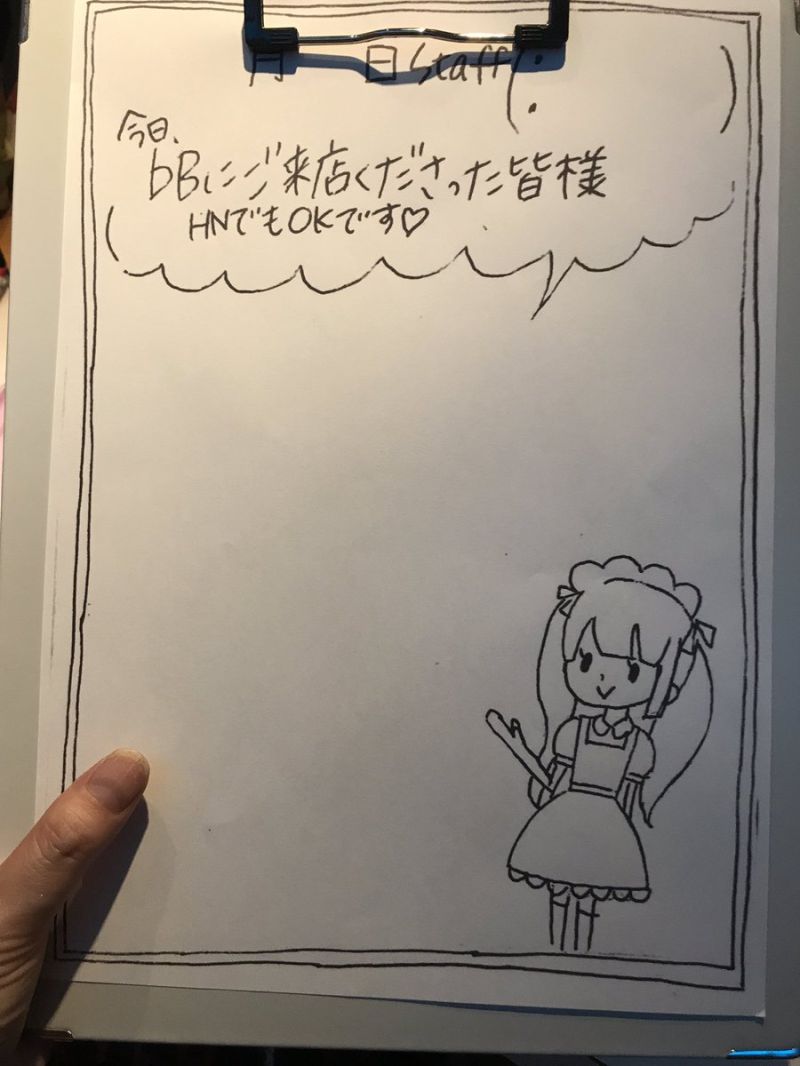 月 日 Staff( : )
今日、
bBにご来店くださった皆様
HNでもOKです♡